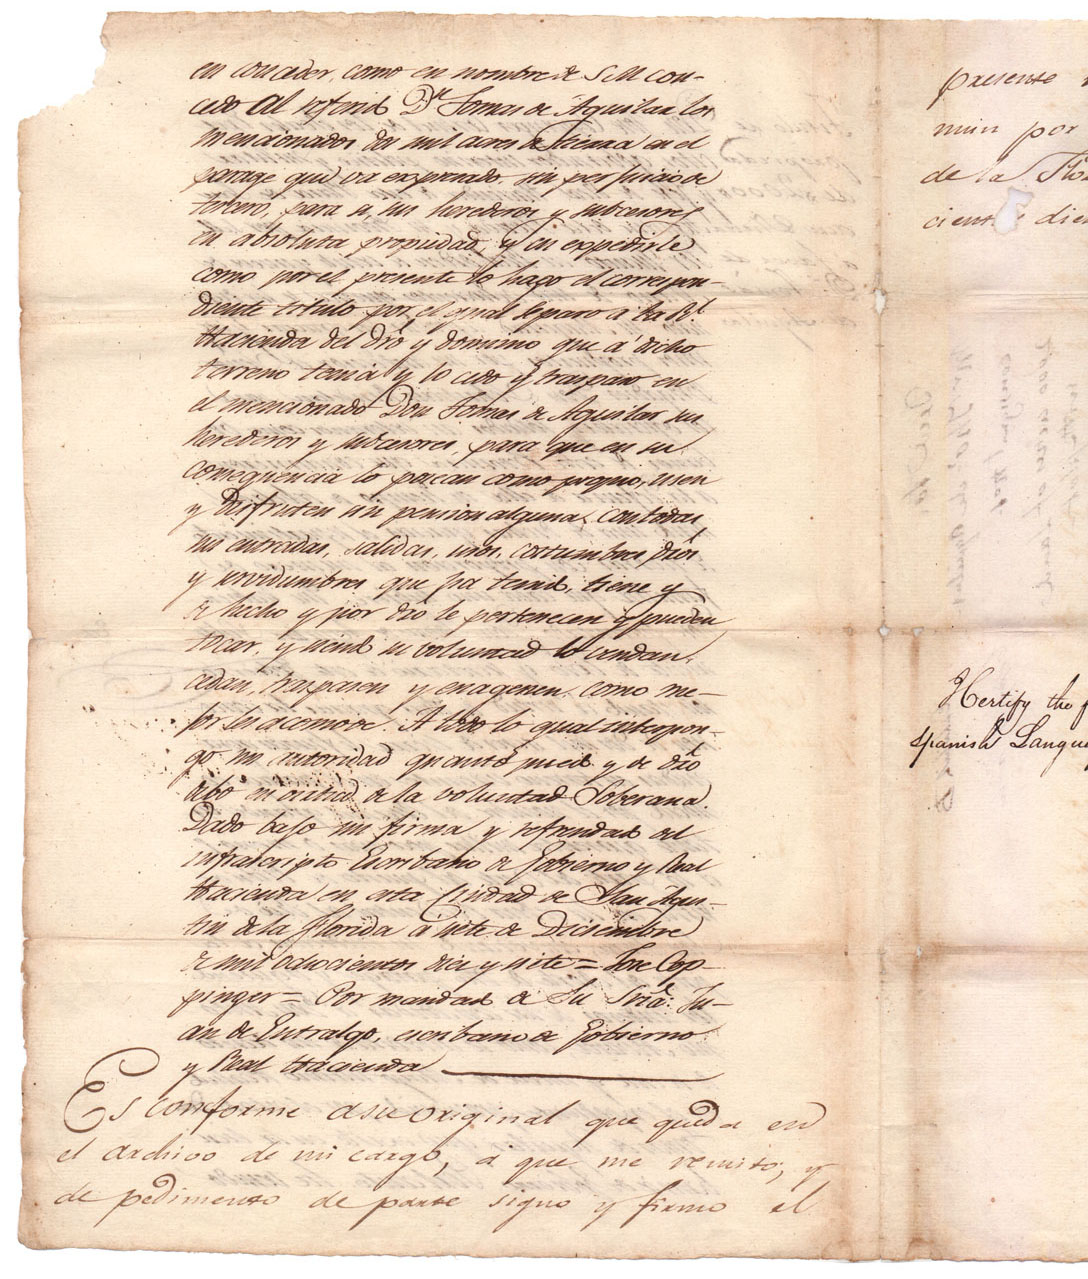 en conceder, como en nombre de S M con-
cedo al referido Dn. Tomas de Aguilar los
mencionados dos mil acres de tierra en el
parage que va expresado, sin perjuicio de
tercero, para si, sus herederos y subcesores
en absoluta propiedad, y en expedirle
como por el presente lo hago el correspon-
diente titulo por el qual separo a la Rl.
Hacienda del dro. y dominio que á dicho
terreno tenia y lo cedo y traspaso en
el mencionado Don Tomas de Aguilar sus
herederos y subcesores, para que en su
consequencia lo posean como propio, usen
y disfruten sin pension alguna, con todas
sus entradas, salidas, usos, costumbres, dros.
y servidumbres que ha tenido, tiene y
de hecho y por dro. le pertenecen y pueden
tocar, y siendo su voluntad lo vendan,
cedan, traspasen y enagenen, como me-
jor les acomode. A todo lo qual interpon-
go mi autoridad quanto puedo y de dro.
debo en virtud de la voluntad Soberana.
Dado bajo mi firma y refrendado del
infrascripto Escribano de Gobierno y Real
Hacienda en esta Ciudad de San Agus-
tin de la Florida á siete de Diciembre
de mil ochocientos diez y siete = Jose Cop-
pinger = Por mandado de Su Sria: Ju-
an de Entralgo, escribano de Gobierno
y Real Hacienda
Es conforme a su original que queda en
el archivo de mi cargo, a que me remito; y
de pedimento de parte signo y firmo el
presente
min por
de la Flo
cientos die
I Certify the
Spanish Langua